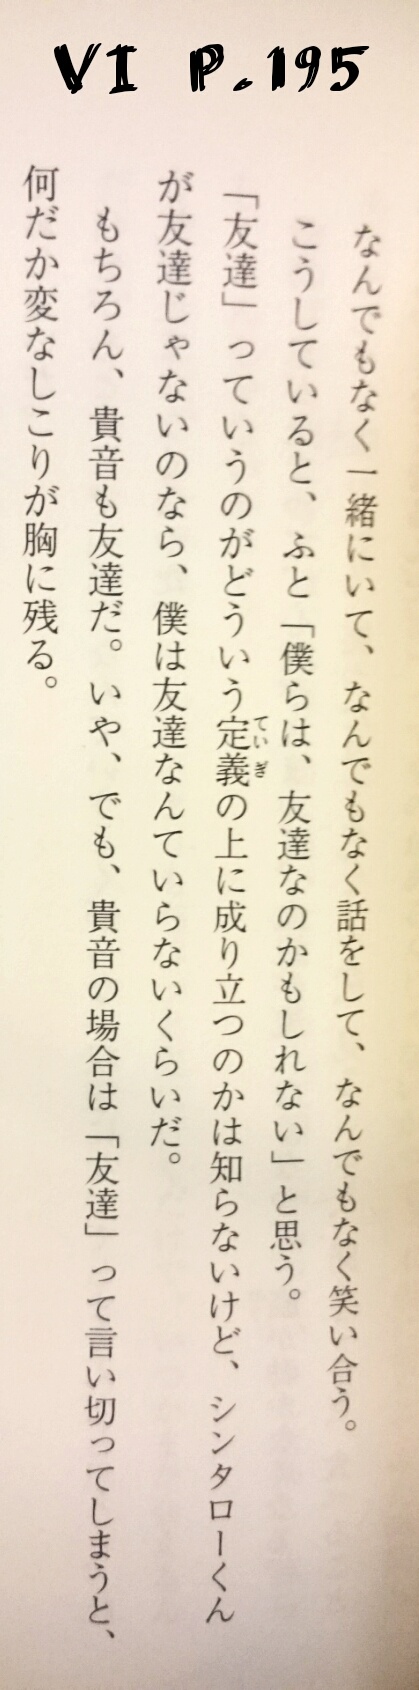 VI P.195
なんでもなく一緒にいて、なんでもなく話をして、なんでもなく笑い合う。
こうしていると、ふと「僕らは、友達なのかもしれない」と思う。
「友達」っていうのがどういう定義の上に成り立つのかは知らないけど、シンタローくん
ていぎ
が友達じゃないのなら、僕は友達なんていらないくらいだ。
もちろん、貴音も友達だ。いや、でも、貴音の場合は「友達」って言い切ってしまうと、
何だか変なしこりが胸に残る。